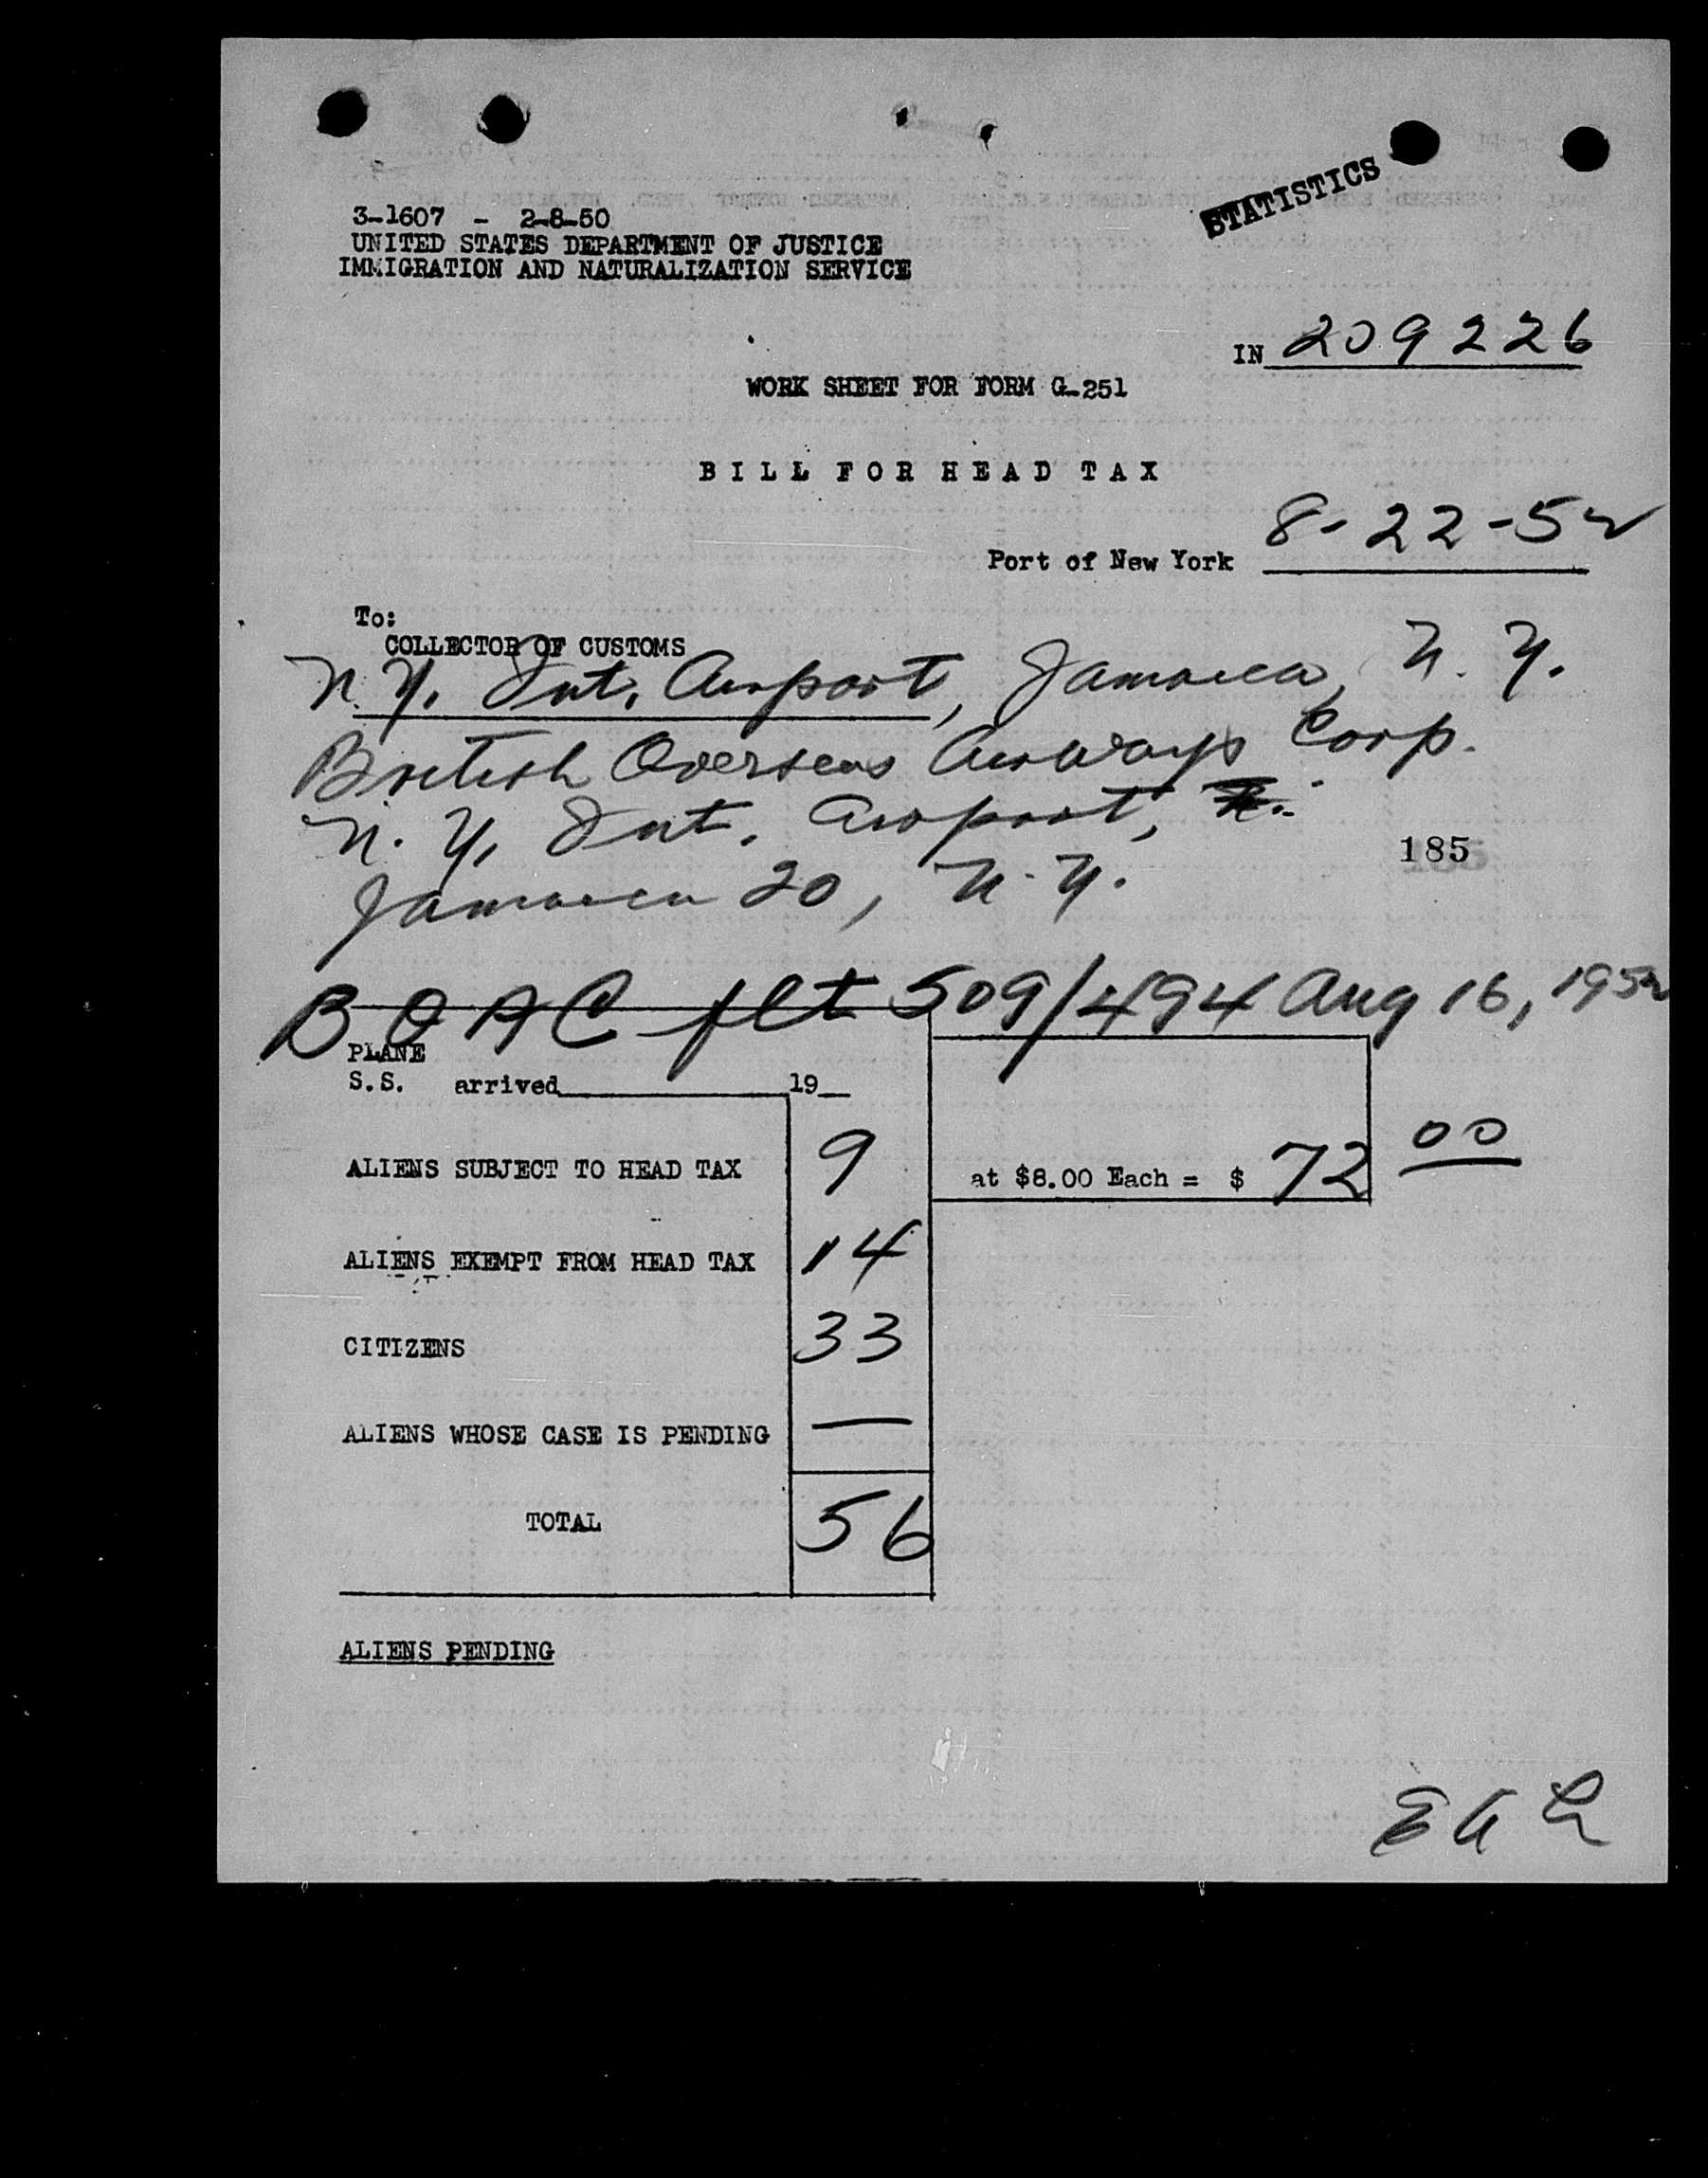 STATISTICS
3-1607 - 2-8-50
UNITED STATES DEPARTMENT OF JUSTICE
IMMIGRATION AND NATURALIZATION SERVICE
IN 209226
WORK SHEET FOR FORM G-251
BILL FOR HEAD TAX
Port of New York 8-22-52
To:
COLLECTOR OF CUSTOMS
N.Y. Int. Airport, Jamaica, N.Y.
British Overseas Airways Corp.
N.Y. Int. Airport,
185
Jamaica 20, N.Y.
BOAC flt 509/494 Aug 16, 1952
PLANE
S.S. arrived 19
ALIENS SUBJECT TO HEAD TAX 9 at $8.00 Each = $ 72 00
ALIENS EXEMPT FROM HEAD TAX 14
CITIZENS 33
ALIENS WHOSE CASE IS PENDING —
TOTAL 56
ALIENS PENDING